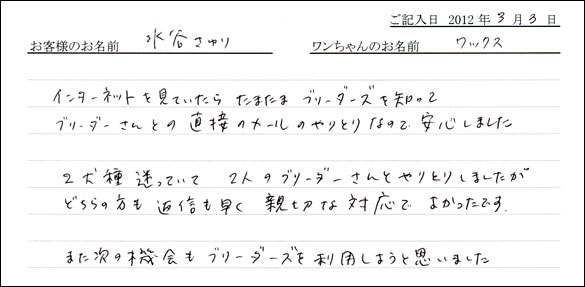 ご記入日 2012年3月3日
お客様のお名前 水谷さゆり ワンちゃんのお名前 ワックス
インターネットを見ていたら たまたま ブリーダーズを知って
ブリーダーさんとの直接のメールのやりとりなので安心しました
2犬種迷っていて 2人のブリーダーさんとやりとりしましたが
どちらの方も返信も早く親切な対応でよかったです。
また次の機会もブリーダーズを利用しようと思いました